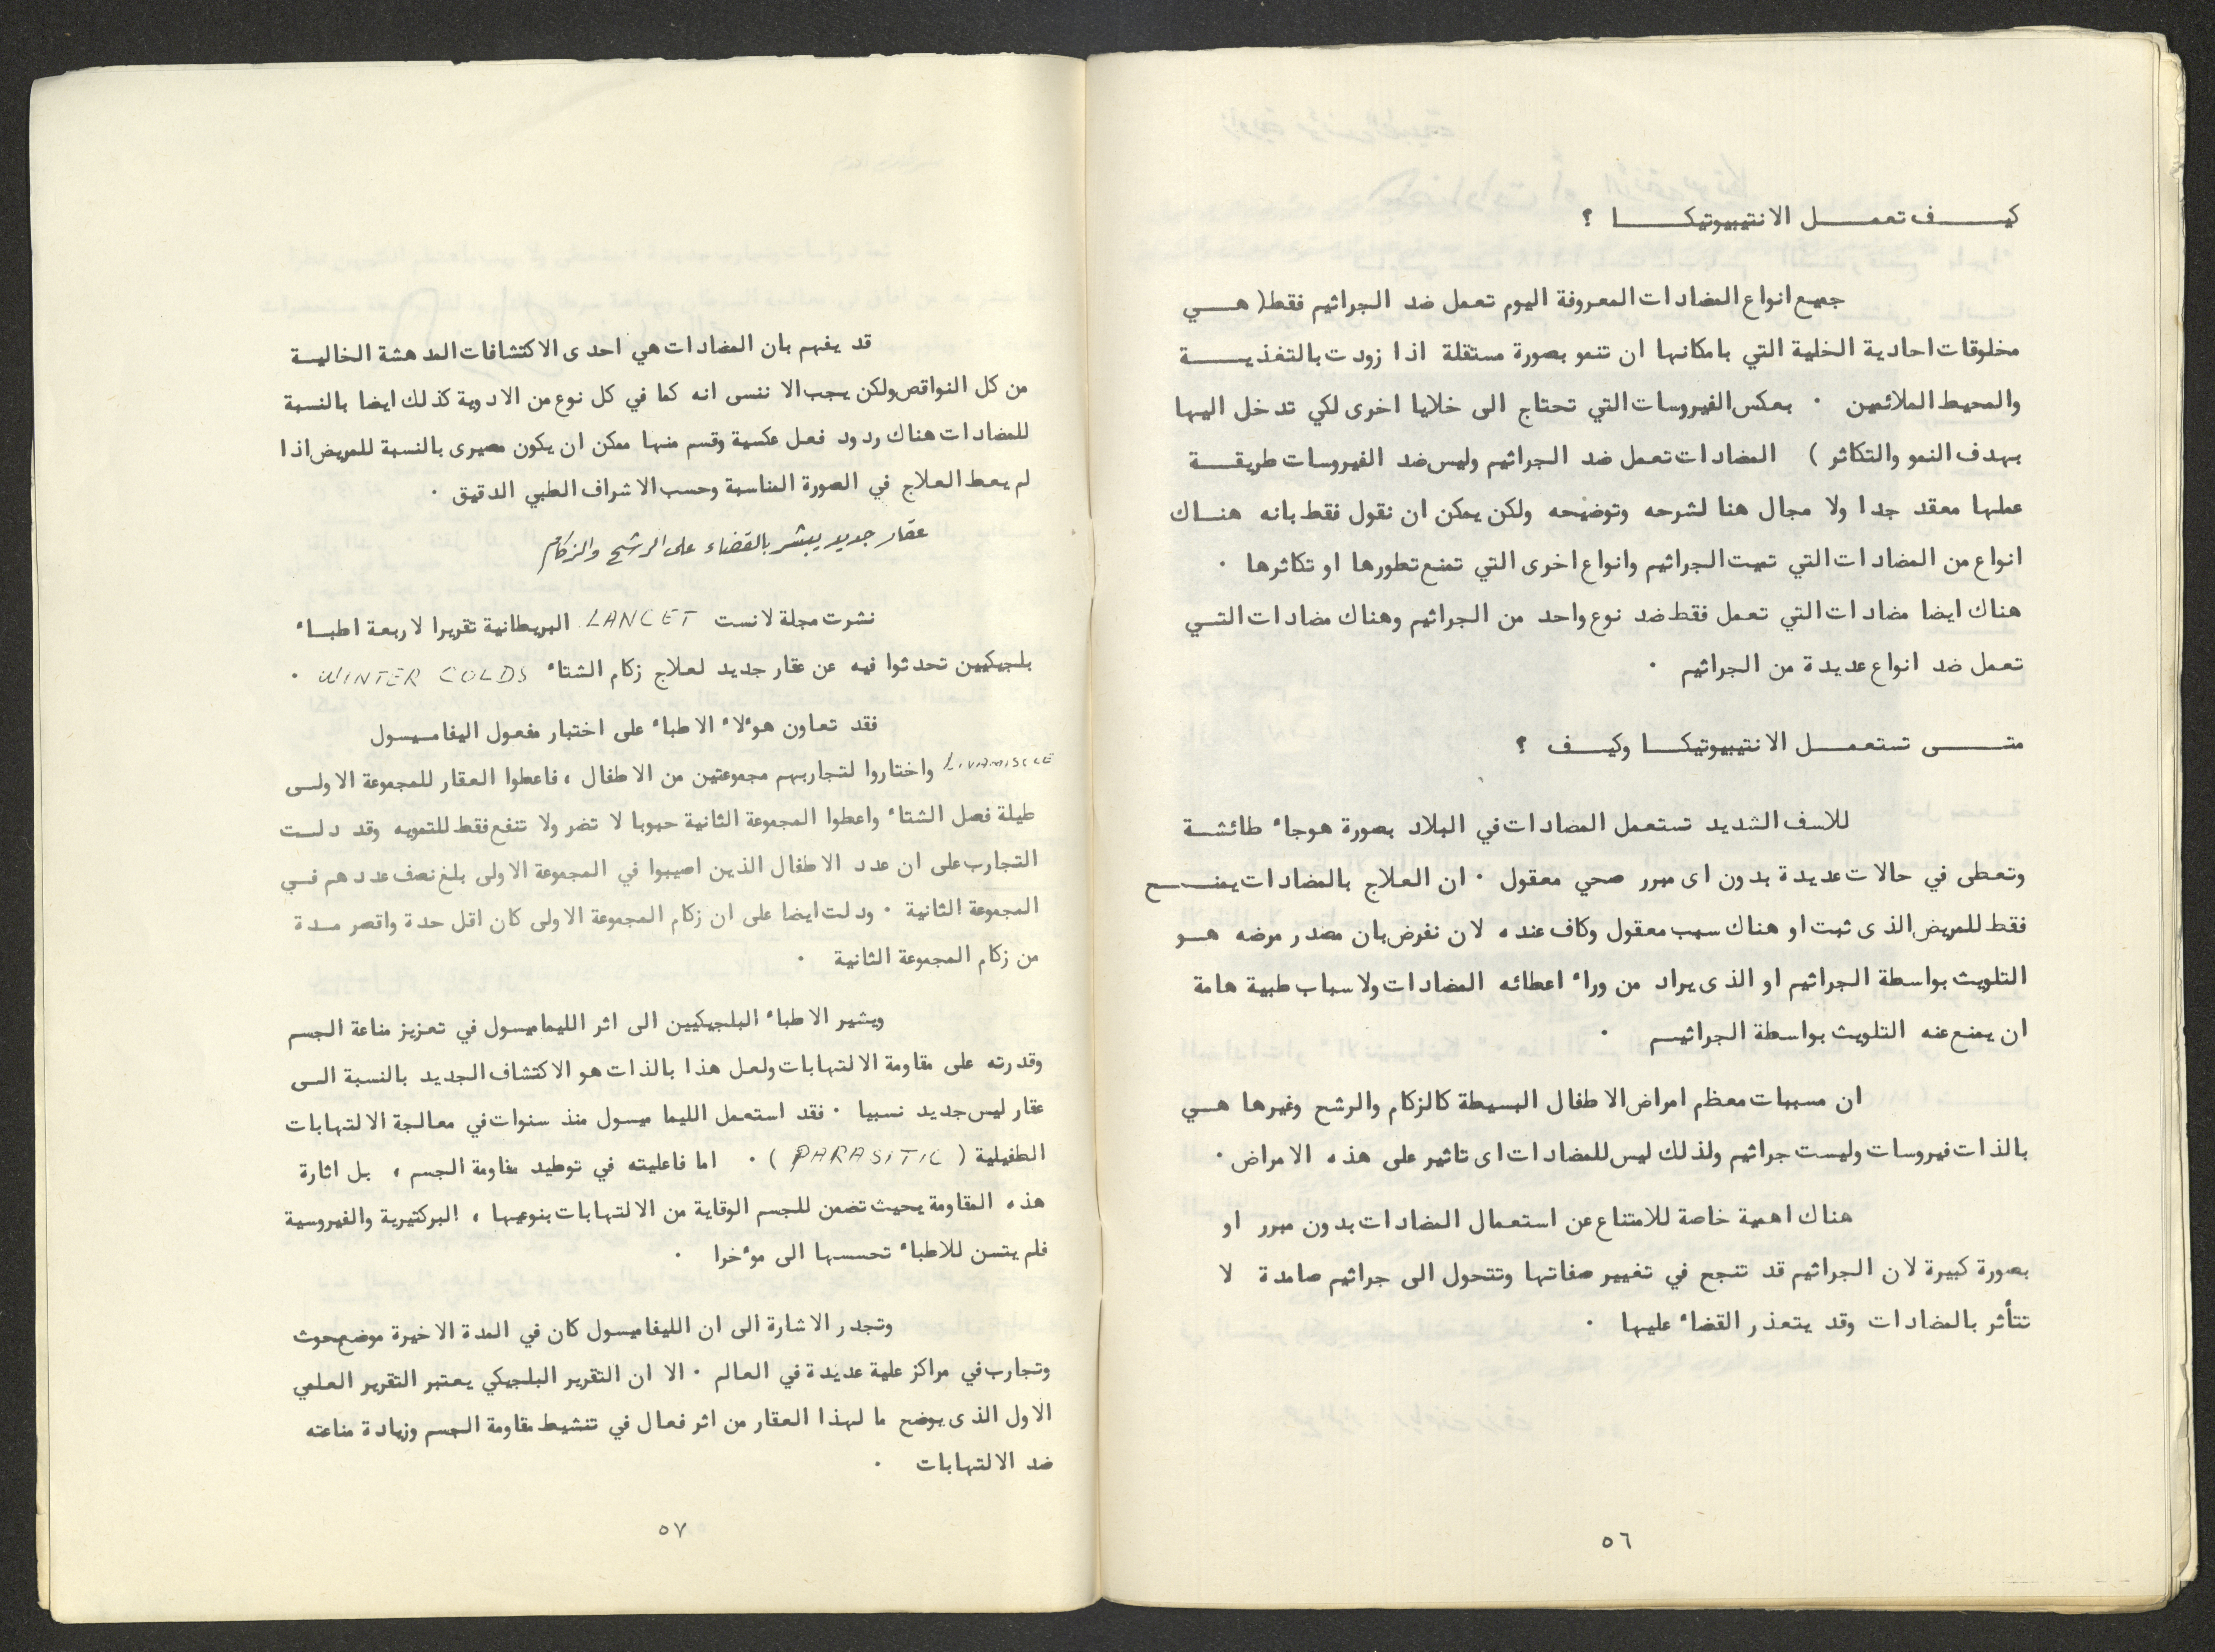 كيف تعمل الانتيبيوتيكا ؟
جميع انواع المضادات المعروفة اليوم تعمل ضد الجراثيم فقط ( هي
مخلوقات احادية الخلية التي بامكانها ان تنمو بصورة مستقلة اذا زودت بالتغذية
والمحيط الملائمين . بعكس الفيروسات التي تحتاج الى خلايا اخرى لكي تدخل اليها
بهدف النمو والتكاثر ) المضادات تعمل ضد الجراثيم وليس ضد الفيروسات طريقة
عملها معقد جدا ولا مجال هنا لشرحه وتوضيحه ولكن يمكن ان نقول فقط بانه هناك
انواع من المضادات التي تميت الجراثيم وانواع اخرى التي تمنع تطورها او تكاثرها .
هناك ايضا مضادات التي تعمل فقط ضد نوع واحد من الجراثيم وهناك مضادات التي
تعمل ضد انواع عديدة من الجراثيم .
متى تستعمل الانتيبيوتيكا وكيف ؟
للاسف الشديد تستعمل المضادات في البلاد بصورة هوجاء طائشة
وتعطى في حالات عديدة بدون اى مبرر صحي معقول . ان العلاج بالمضادات يمنح
فقط للمريض الذى ثبت او هناك سبب معقول وكاف عنده لان نفرض بان مصدر مرضه هو
التلويث بواسطة الجراثيم او الذى يراد من وراء اعطائه المضادات ولاسباب طبية هامة
ان يمنع عنه التلويث بواسطة الجراثيم .
ان مسببات معظم امراض الاطفال البسيطة كالزكام والرشح وغيرها هي
بالذات فيروسات وليست جراثيم ولذلك ليس للمضادات اى تاثير على هذه الامراض .
هناك اهمية خاصة للامتناع عن استعمال المضادات بدون مبرر او
بصورة كبيرة لان الجراثيم قد تنجح في تغيير صفاتها وتتحول الى جراثيم صامدة لا
تتأثر بالمضادات وقد يتعذر القضاء عليها .
٥٦
قد يفهم بان المضادات هي احدى الاكتشافات المدهشة الخالية
من كل النواقص ولكن يجب الا ننسى انه كما في كل نوع من الادوية كذلك ايضا بالنسبة
للمضادات هناك ردود فعل عكسية وقسم منها ممكن ان يكون مصيرى بالنسبة للمريض اذا
لم يعط العلاج في الصورة المناسبة وحسب الاشراف الطبي الدقيق .
عقار جديد يبشر بالقضاء على الرشح والزكام
نشرت مجلة لانست LANCET البريطانية تقريرا لاربعة اطباء
بلجيكيين تحدثوا فيه عن عقار جديد لعلاج زكام الشتاء WINTER COLDS .
فقد تعاون هوءلاء الاطباء على اختبار مفعول اليفاميسول
واختاروا لتجاربهم مجموعتين من الاطفال ، فاعطوا العقار للمجموعة الاولى
طيلة فصل الشتاء واعطوا المجموعة الثانية حبوبا لا تضر ولا تنفع فقط للتمويه وقد دلت
التجارب على ان عدد الاطفال الذين اصيبوا في المجموعة الاولى بلغ نصف عددهم في
المجموعة الثانية . ودلت ايضا على ان زكام المجموعة الاولى كان اقل حدة واقصر مدة
من زكام المجموعة الثانية .
ويشير الاطباء البلجيكيين الى اثر الليماميسول في تعزيز مناعة الجسم
وقدرته على مقاومة الالتهابات ولعل هذا بالذات هو الاكتشاف الجديد بالنسبة الى
عقار ليس جديد نسبيا . فقد استعمل الليما ميسول منذ سنوات في معالجة الالتهابات
الطفيلية ( PARASITIC ) . اما فاعليته في توطيد مقاومة الجسم ، بل اثارة
هذه المقاومة بحيث تضمن للجسم الوقاية من الالتهابات بنوعيها ، البركتيرية والفيروسية
فلم يتسن للاطباء تحسسها الى موءخرا .
وتجدر الاشارة الى ان الليفاميسول كان في المدة الاخيرة موضع بحوث
وتجارب في مراكز علمية عديدة في العالم . الا ان التقرير البلجيكي يعتبر التقرير العلمي
الاول الذى يوضح ما لهذا العقار من اثر فعال في تنشيط مقاومة الجسم وزيادة مناعته
ضد الالتهابات .
٥٧